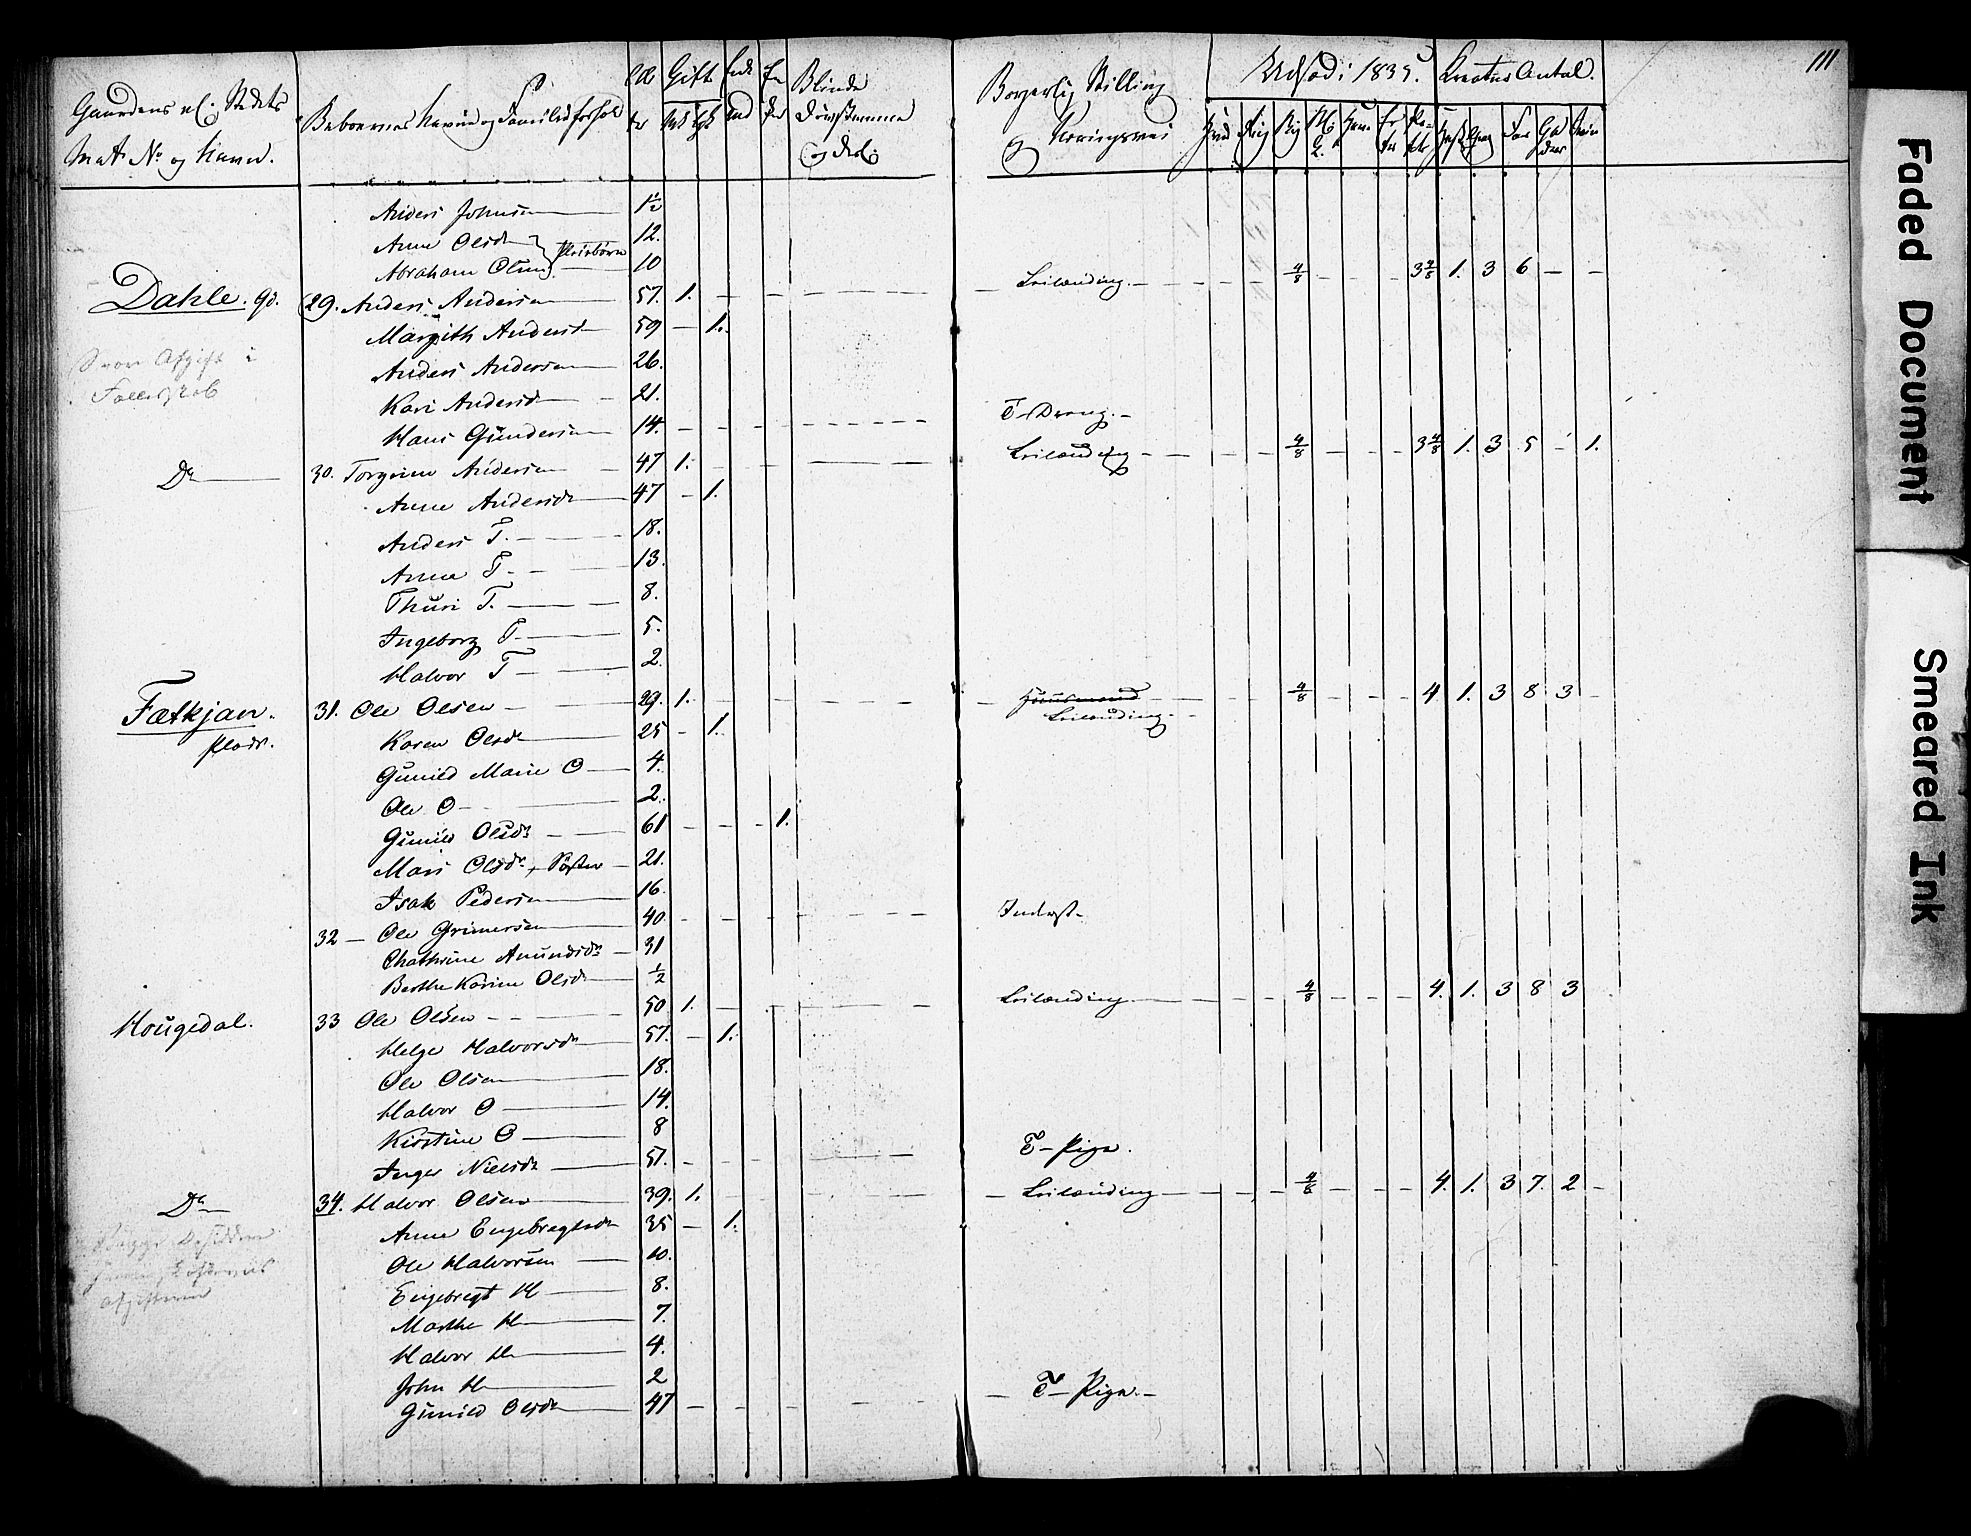 111
Gaardens el. Stedets
Mat. No og Navn.
Beboernes Navne og Familieforhold
Gift
Blinde
Døvstumme
Borgerlig Stilling
og Næringsvei
Udsæd i 1835.
Creatur Antal.
Anders Johnsen 1½
Anne Olsdr 12. Pleiebørn
Abraham Olsen 10
Dahle. gd. 29. Anders Andersen 57. 1. Leilænding. 4/8 3 4/8 1. 3 6
Margith Andersd 59 1.
Svare Afgift i
Fællesskab
Anders Andersen 26.
Kari Andersd 21.
Hans Gundersen 14. T-Dreng.
Do 30. Torgrim Andersen 47 1. Leilænding 4/8 3 4/8 1. 3 5 1.
Anne Andersdr 47 1.
Anders T. 18.
Anne T. 13.
Thuri T. 8.
Ingeborg T. 5.
Halvor T 2.
Fætkjan. 31. Ole Olsen 29. 1. Huusmand 4/8 4 1. 3 8 3
Leilænding.
plads.
Karen Olsdr 25 1.
Gunild Marie O 4.
Ole O 2.
Gunild Olsdr 61 1.
Mari Olsdr, Søster 21.
Isak Pedersen 16.
32 Ole Grimersen 40 Inderst
Chathrine Amundsdr 31
Berthe Karine Olsdr ½
Hougedal. 33 Ole Olsen 50 1. Leilænding 4/8 4. 1. 3 8 3
Helge Halvorsdr 57. 1.
Ole Olsen 18.
Halvor O 14.
Kirstine O 8
Inger Nielsdr 51. T-Pige.
Do 34. Halvor Olsen 39. 1. Leilænding 4/8 4. 1. 3 7. 2
Anne Engebregtsdr 35 1.
Ole Halvorsen 10.
Engebregt H 8.
Marthe H 7.
Halvor H 4.
John H 2
Gunild Olsdr 47 T-Pige.
Faded Document
Smeared Ink